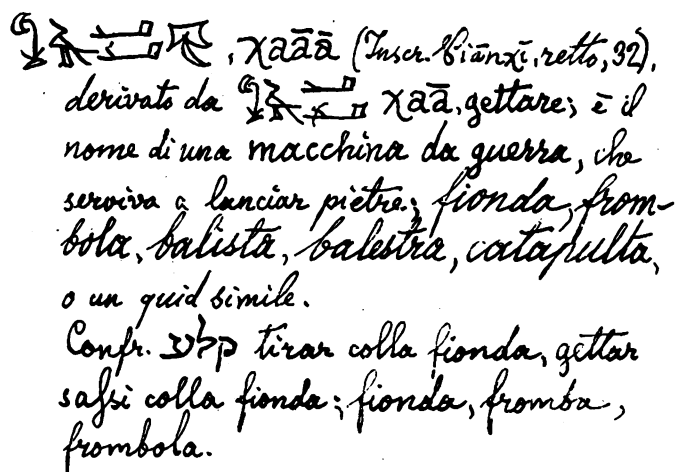 , χaāā (Inscr. Piānχī, retto, 32),
derivato da χaā, gettare; è il
nome di una macchina da guerra, che
serviva a lanciar pietre; fionda, from-
bola, balista, balestra, catapulta,
o un quid simile.
Confr. קלע tirar colla fionda, gettar
saſsi colla fionda; fionda, fromba,
frombola.